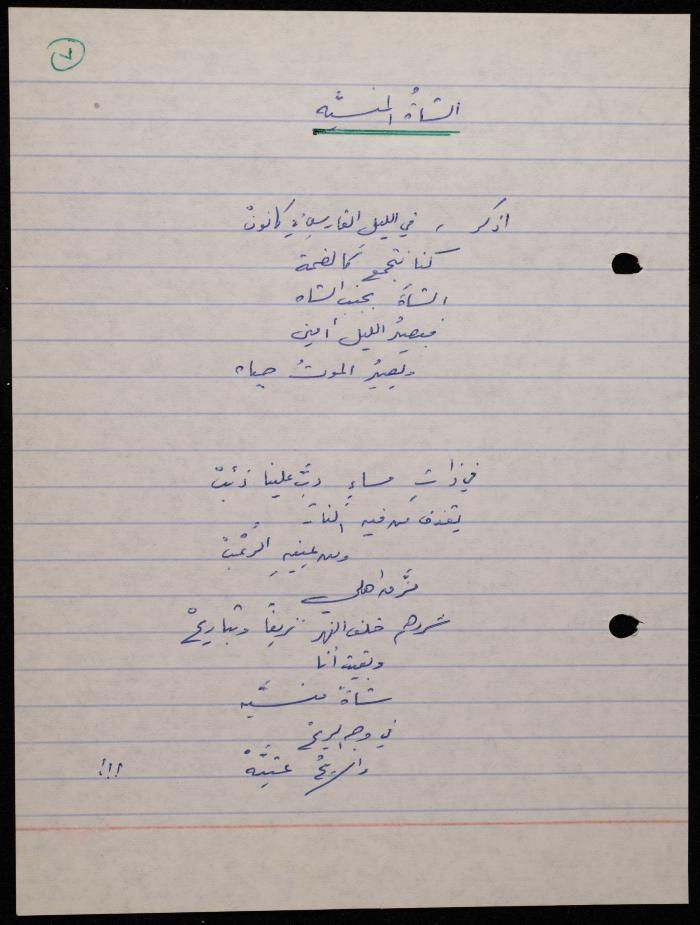 ٧
الشاةُ المنسيَّه
اذكر ، في الليل القارس في كانونْ
كنا نتجمع كالضمة
الشاةُ بجنب الشاه
فيصيرُ الليل أمين
ويصيرُ الموتُ حياه
في ذاتِ مساءٍ دبَّ علينا ذئبْ
يقذف من فيه النار
ومن عينيهِ الرُعبْ
مزَّق اهلي
شردهم خلف النهر نزيفاً وتباريحْ
وبقيت أنا
شاةً منسيَّه
في وجه الريحْ
والريحُ عتيَّهْ !!!